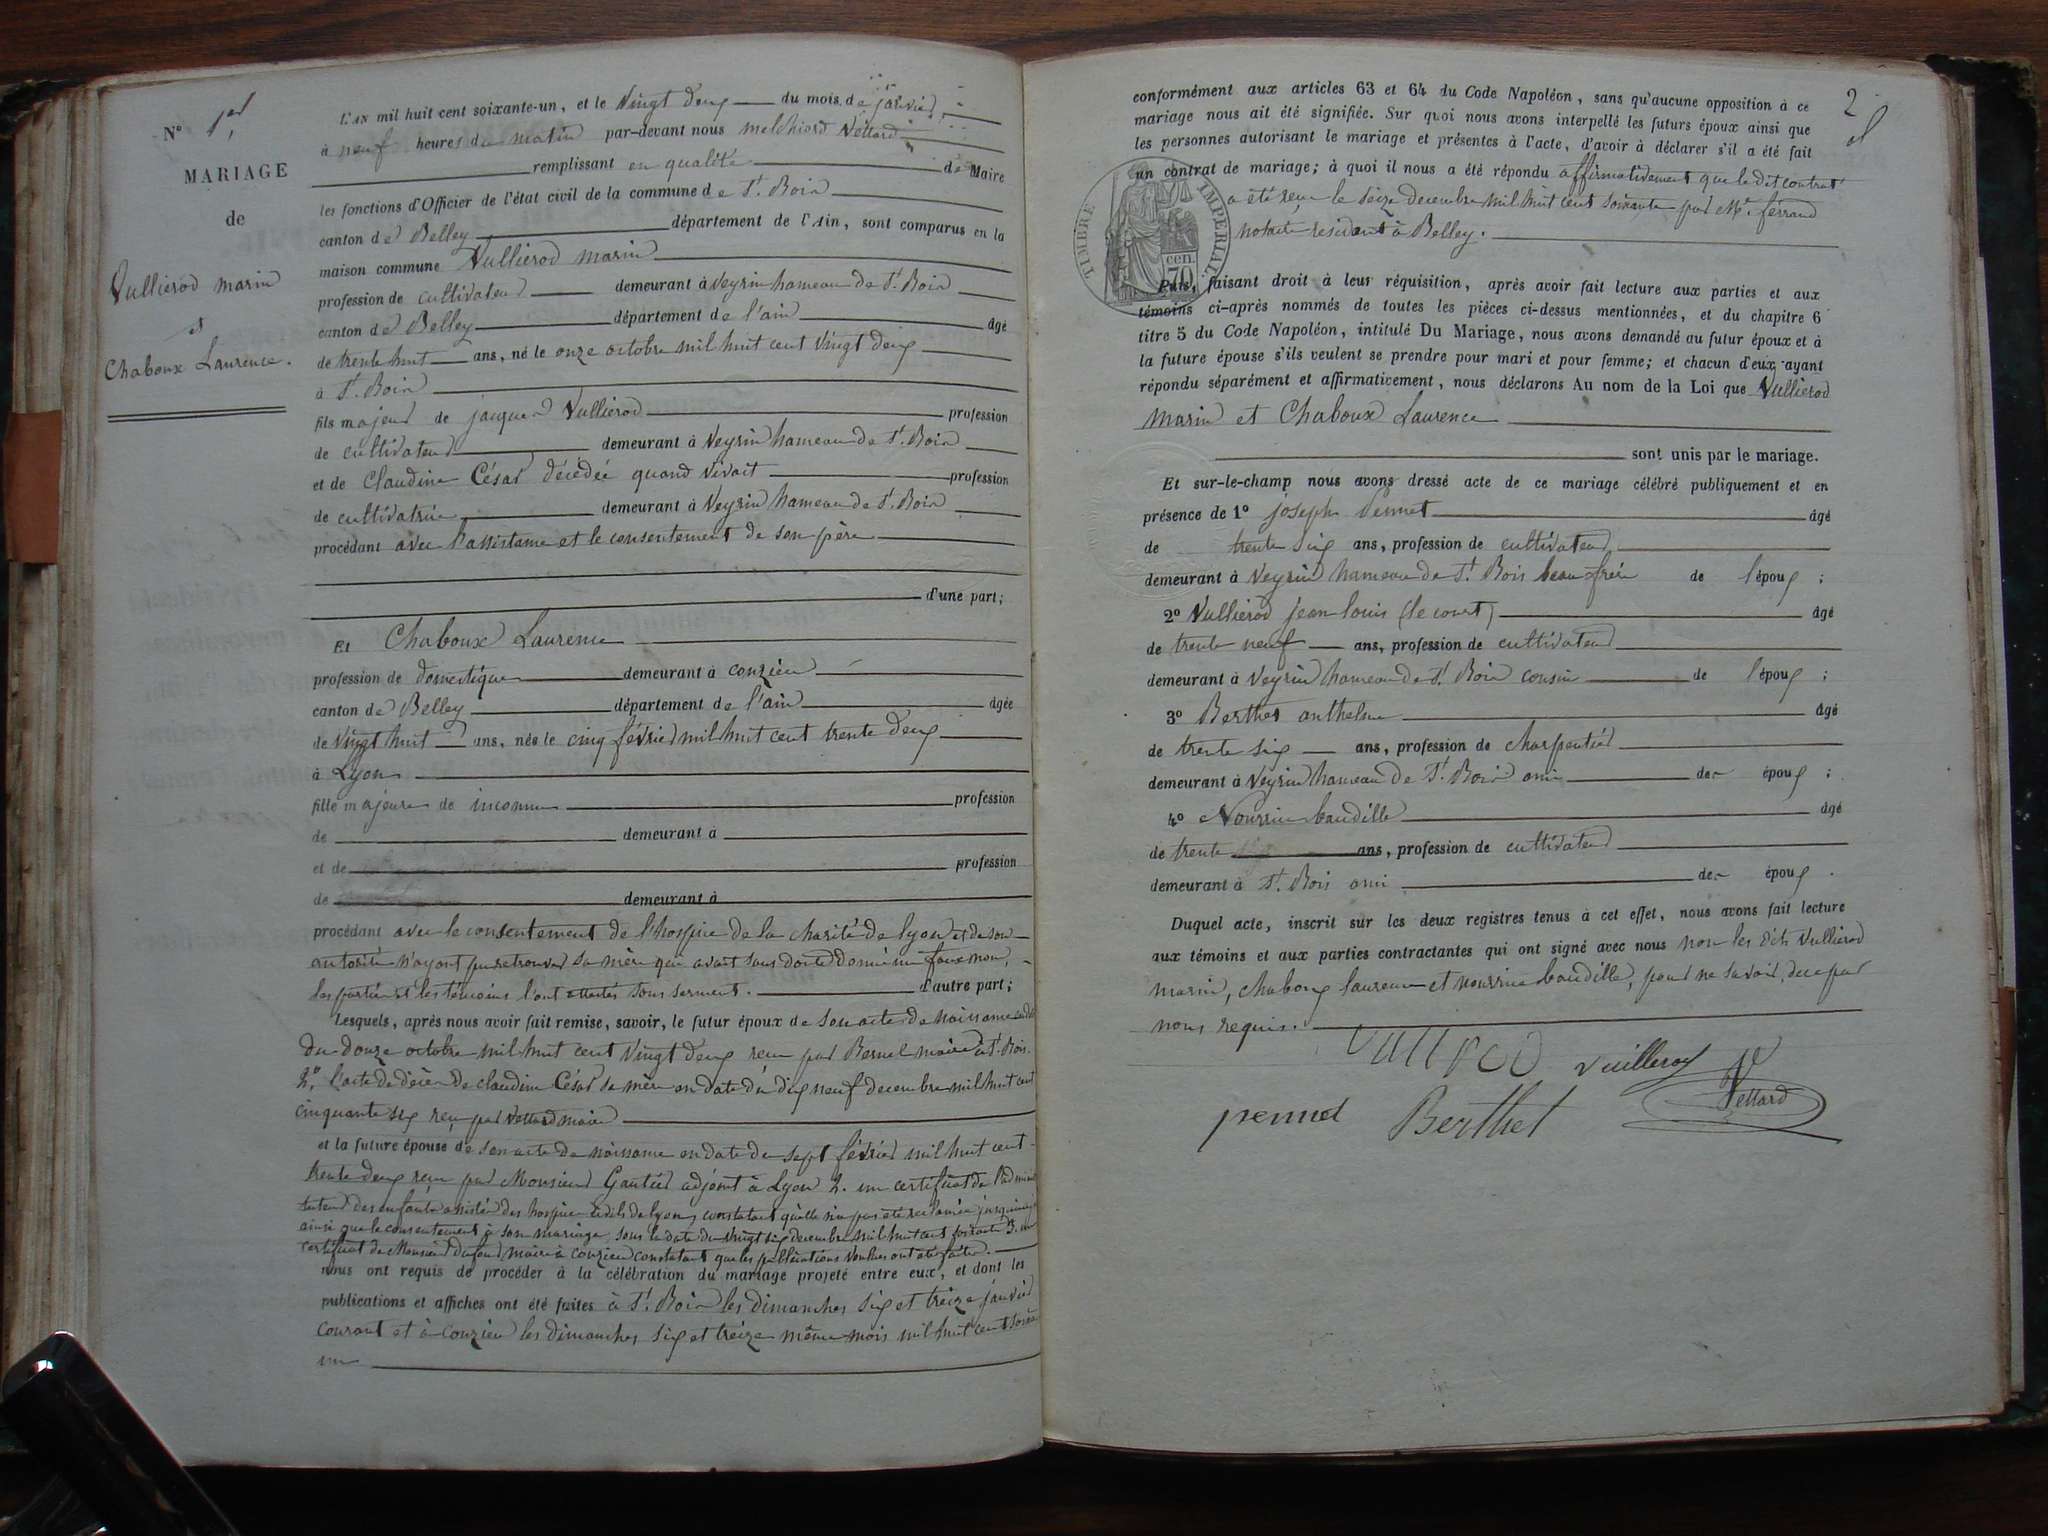 N° 1er
MARIAGE
de
Vullierod marin
et
Chaboux Laurence.
L'AN mil huit cent soixante-un, et le Vingt deux du mois de janvier,
à neuf heures du matin par-devant nous melchiord Vettard
remplissant en qualité de Maire
les fonctions d'Officier de l'état civil de la commune de St. Bois
canton de Belley département de l'Ain, sont comparus en la
maison commune Vullierod marin
profession de cultivateur demeurant à Veyrin hameau de St. Bois
canton de Belley département de l'ain âgé
de trente huit ans, né le onze octobre mil huit cent Vingt deux
à St. Bois
fils majeur de jacques Vullierod profession
de cultivateur demeurant à Veyrin hameau de St. Bois
et de Claudine César décédée quand vivait profession
de cultivatrice demeurant à Veyrin hameau de St. Bois
procédant avec l'assistance et le consentement de son père
d'une part;
Et Chaboux Laurence
profession de domestique demeurant à conzieu
canton de Belley département de l'ain âgée
de Vingt huit ans, née le cinq février mil huit cent trente deux
à Lyon
fille majeure de inconnu profession
de demeurant à
et de profession
de demeurant à
procédant avec le consentement de l'hospice de la charité de lyon et de son
autorité n'ayant pu retrouver sa mère qui avait sans doute donné un faux nom,
les parties et les témoins l'ont attesté sous serment. d'autre part;
Lesquels, après nous avoir fait remise, savoir, le futur époux de son acte de naissance en date
du douze octobre mil huit cent Vingt deux reçu par Bernel maire à St. Bois.
2° l'acte de décès de claudine César sa mère en date du dix neuf decembre mil huit cent
cinquante six reçu par Vettard maire
et la future épouse de son acte de naissance en date du sept février mil huit cent
trente deux reçu par Monsieur Gautier adjoint à Lyon 2. un certificat de l'admini
tuteur des enfants assistés des hospices civils de lyon, constatant qu'elle n'a pas été reclamée jusqu'ici
ainsi que le consentement à son mariage, sous la date du vingt six decembre mil huit cent soixante 3. un
certificat de Monsieur Dufour maire à conzieu constatant que les publications voulues ont été faites.
nous ont requis de procéder à la célébration du mariage projeté entre eux, et dont les
publications et affiches ont été faites à St. Bois les dimanches six et treize janvier
courant et à conzieu les dimanches six et treize même mois mil huit cent soixante
un
2
conformément aux articles 63 et 64 du Code Napoléon, sans qu'aucune opposition à ce
mariage nous ait été signifiée. Sur quoi nous avons interpellé les futurs époux ainsi que
les personnes autorisant le mariage et présentes à l'acte, d'avoir à déclarer s'il a été fait
un contrat de mariage; à quoi il nous a été répondu affirmativement que le dit contrat
a été reçu le seize decembre mil huit cent soixante par Mt. ferrand
notaire residant à Belley.
TIMBRE IMPERIAL
70 cen.
Puis, faisant droit à leur réquisition, après avoir fait lecture aux parties et aux
témoins ci-après nommés de toutes les pièces ci-dessus mentionnées, et du chapitre 6
titre 5 du Code Napoléon, intitulé Du Mariage, nous avons demandé au futur époux et à
la future épouse s'ils veulent se prendre pour mari et pour femme; et chacun d'eux ayant
répondu séparément et affirmativement, nous déclarons Au nom de la Loi que Vullierod
marin et Chaboux Laurence
sont unis par le mariage.
Et sur-le-champ nous avons dressé acte de ce mariage célébré publiquement et en
présence de 1° joseph Pennet âgé
de trente six ans, profession de cultivateur
demeurant à Veyrin hameau de St. Bois beau frère de l'époux ;
2° Vullierod jean louis (le court) âgé
de trente neuf ans, profession de cultivateur
demeurant à Veyrin hameau de St. Bois cousin de l'époux ;
3° Berthet anthelme âgé
de trente six ans, profession de charpentier
demeurant à Veyrin hameau de St. Bois ami des époux ;
4° Nourrin baudille âgé
de trente ans, profession de cultivateur
demeurant à St. Bois ami des époux .
Duquel acte, inscrit sur les deux registres tenus à cet effet, nous avons fait lecture
aux témoins et aux parties contractantes qui ont signé avec nous non les dits Vullierod
marin, chaboux laurence et nourrin baudille, pour ne savoir, de ce par
nous requis.
Vullerod Vuilleroy
pennet Berthet Vettard